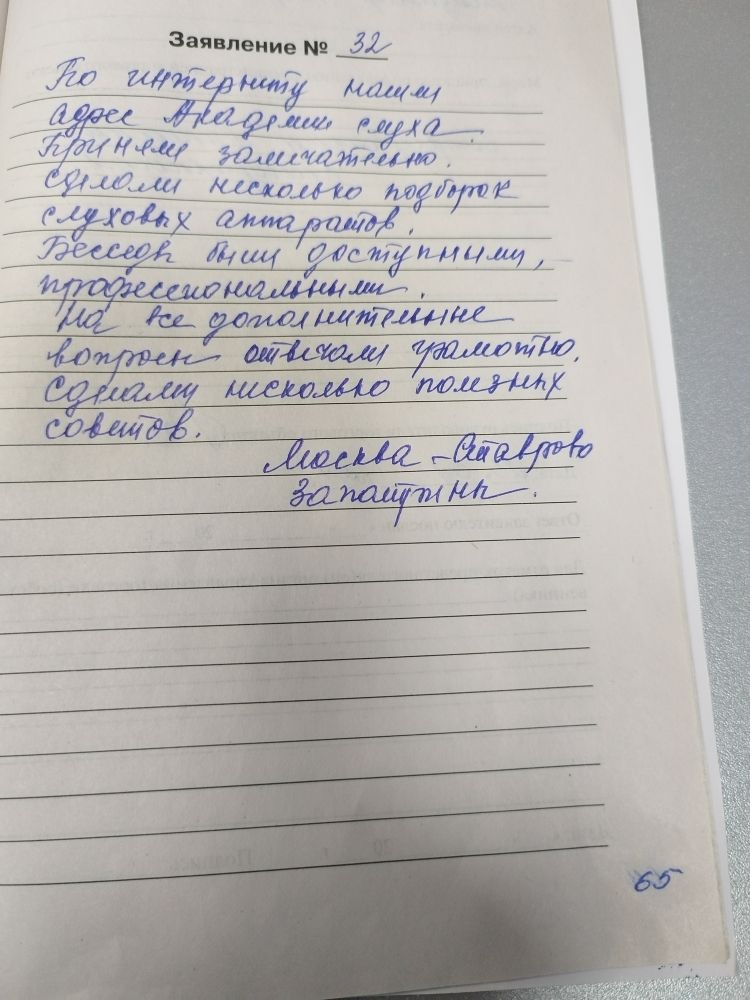 Заявление № 32
По интернету нашли
адрес Академии слуха.
Приняли замечательно.
Сделали несколько подборок
слуховых аппаратов.
Беседы были доступными,
профессиональными.
На все дополнительные
вопросы отвечали грамотно.
Сделали несколько полезных
советов.
Москва - Ставрово
65